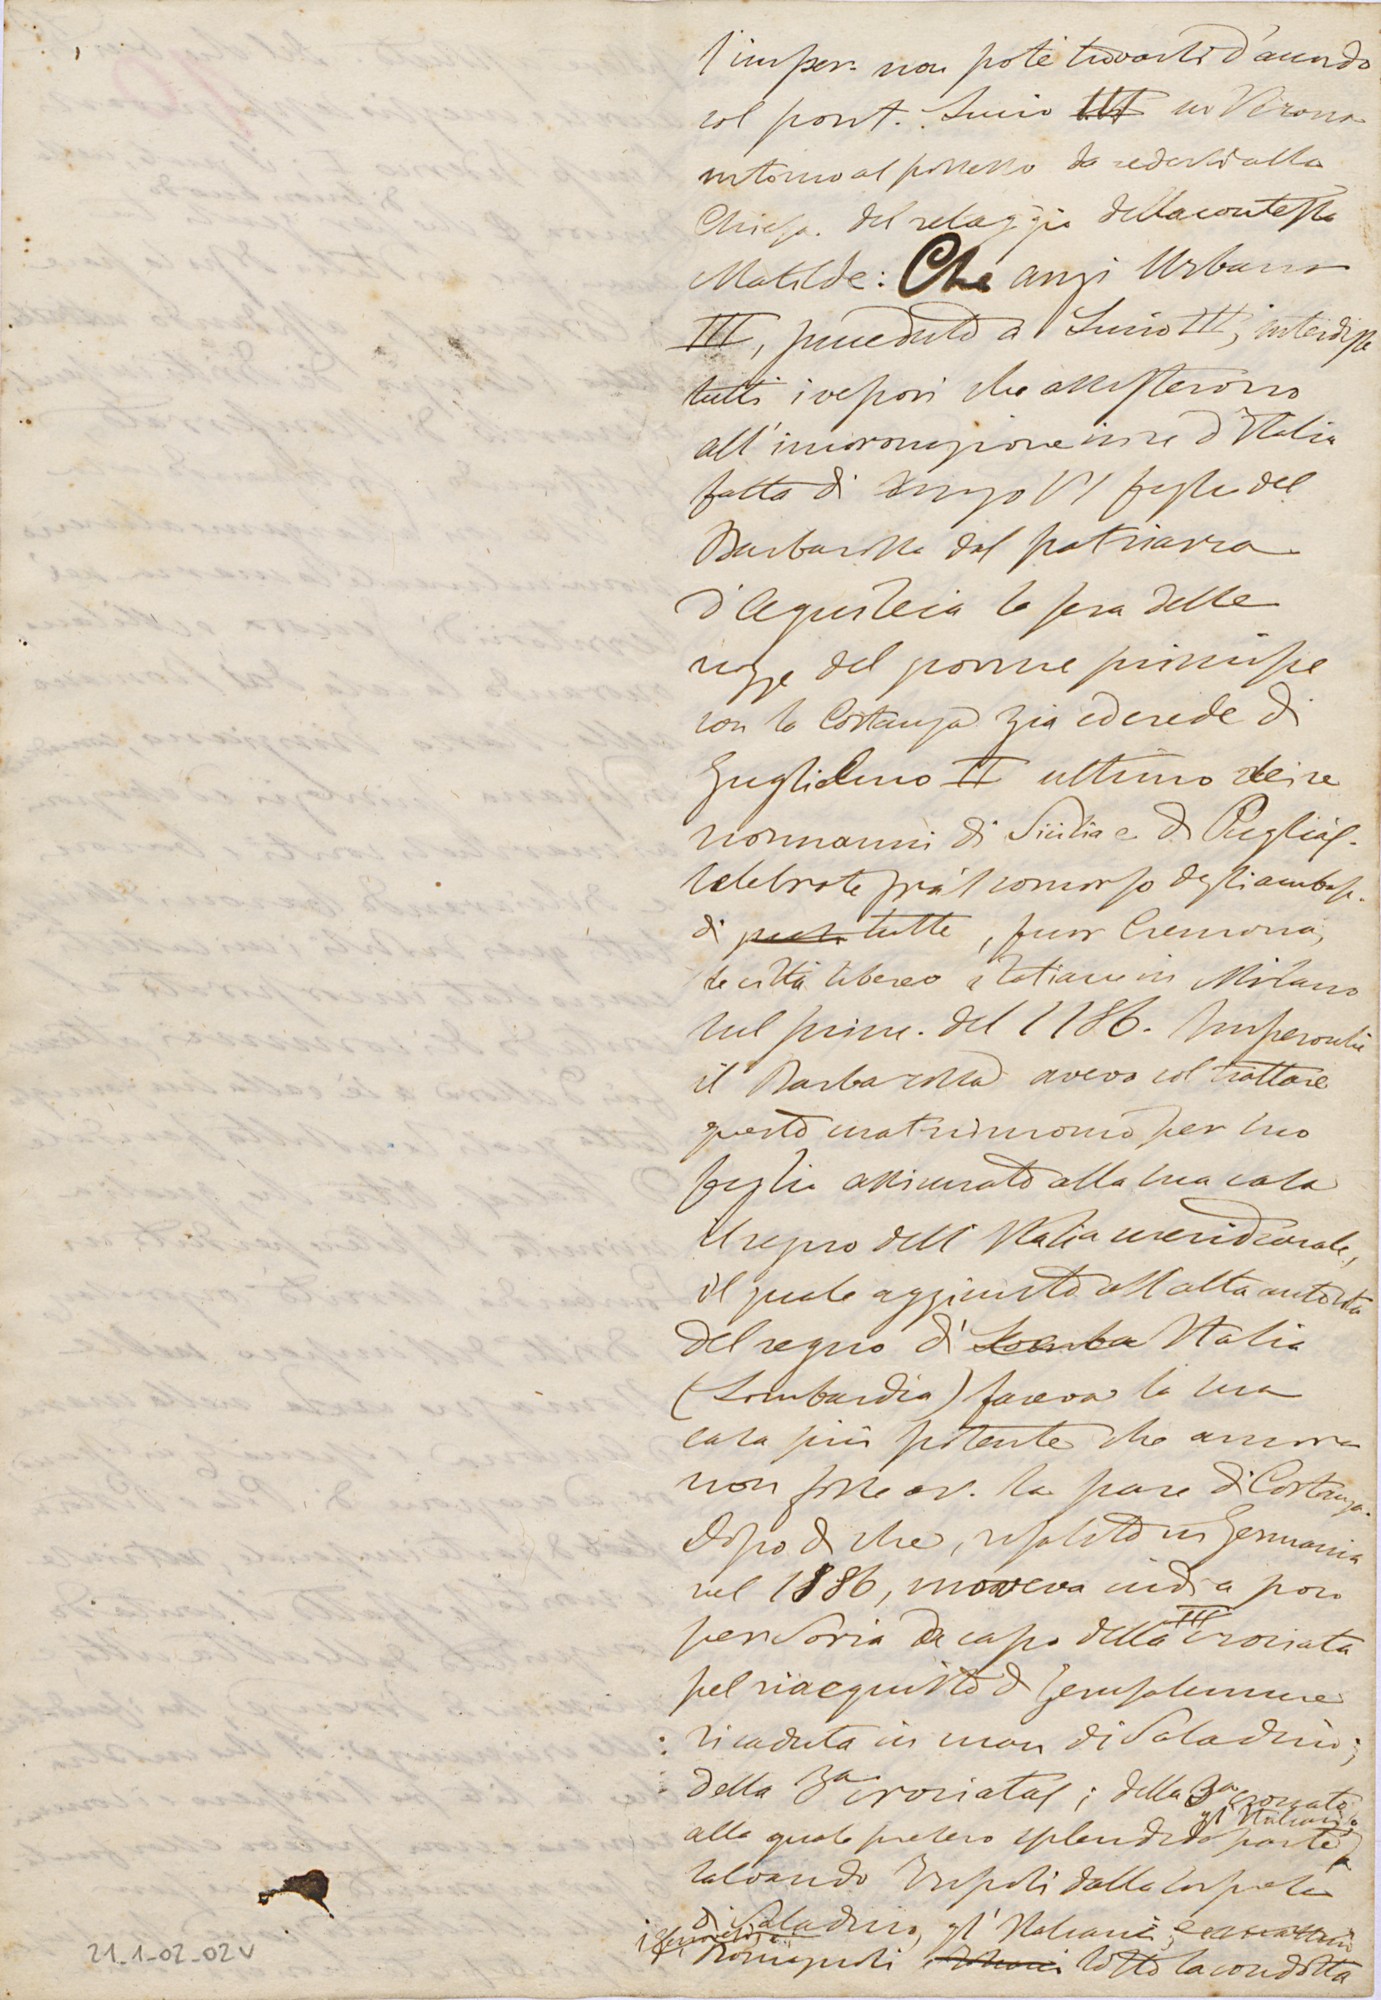 l'imper. non potè trovarsi d'accordo
col pont. Lucio III in Verona
intorno al possesso da cedersi alla
Chiesa del retaggio della contessa
Matilde: Che anzi Urbano
III, succeduto a Lucio III, interdisse
tutti i vescovi che assisterono
all'incoronazione in re d'Italia
fatta di Arrigo VI figlio del
Barbarossa dal patriarca
d'Aquileia la sera delle
nozze del giovine principe
con la Costanza zia ed erede di
Guglielmo II ultimo dei re
normanni di Sicilia e di Puglia
celebrate fra 'l concorso degli ambasc.
di tutte, fuor Cremona,
le città libere italiane in Milano
nel princ. del 1186. Imperocchè
il Barbarossa aveva col trattare
questo matrimonio per suo
figlio assicurato alla sua casa
il regno dell'Italia meridionale,
il quale aggiunto all'alta autorità
del regno di Lomba Italia
(Lombardia) faceva la sua
casa più potente che ancora
non fosse av. la pace di Costanza.
Dopo di che, risalito in Germania
nel 1186, moveva indi a poco
per Soria da capo della III crociata
pel riacquisto di Gerusalemme
ricaduta in man di Saladino;
della 3a crociata; della 3a crociata
gl' Italiani
alla quale presero splendida parte
salvando Tripoli dalla
di Saladino, gl' Italiani,
i Romagnoli sotto la condotta
21_1_02_02v